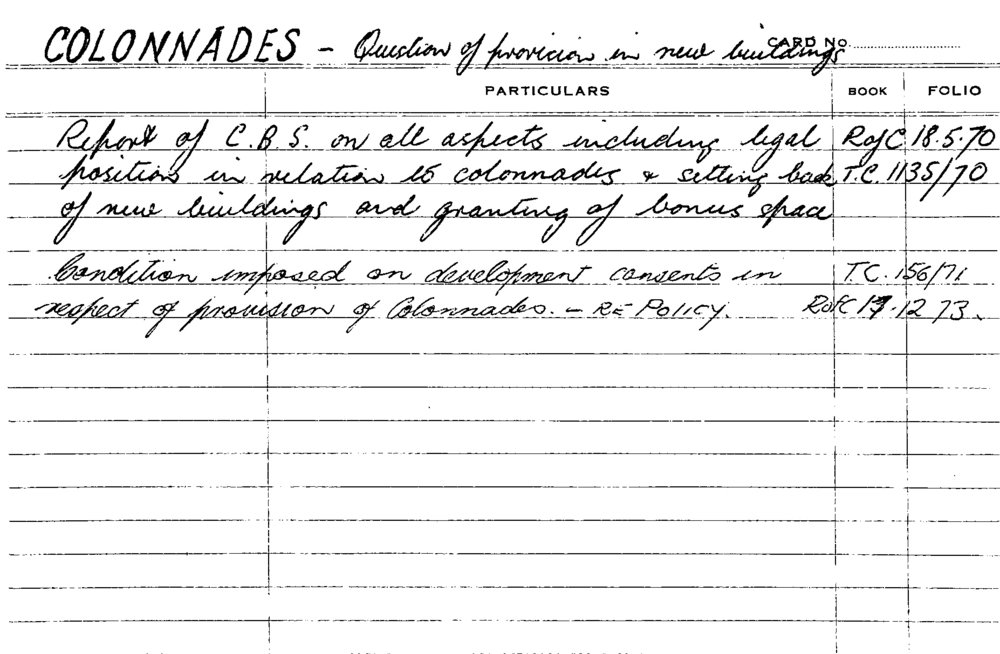 COLONNADES - Question of provision in new buildings CARD No.
PARTICULARS BOOK FOLIO
Report of C.B S. on all aspects including legal RofC 18.5.70
position in relation to colonnades & setting back T.C. 1135/70
of new buildings and granting of bonus space
Condition imposed on development consents in T.C. 156/71
respect of provision of Colonnades. - RE POLICY. RofC 17.12.73.